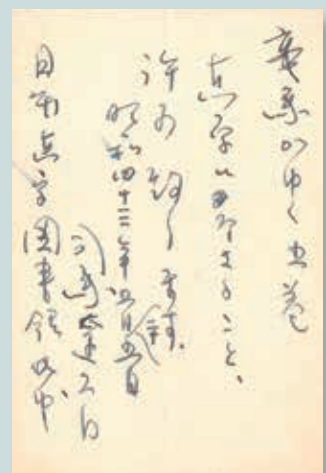 竜馬がゆく五巻
点字に さるること、
許可致し
昭和四十二年五月五日
司馬遼太郎
日本点字図書館御中